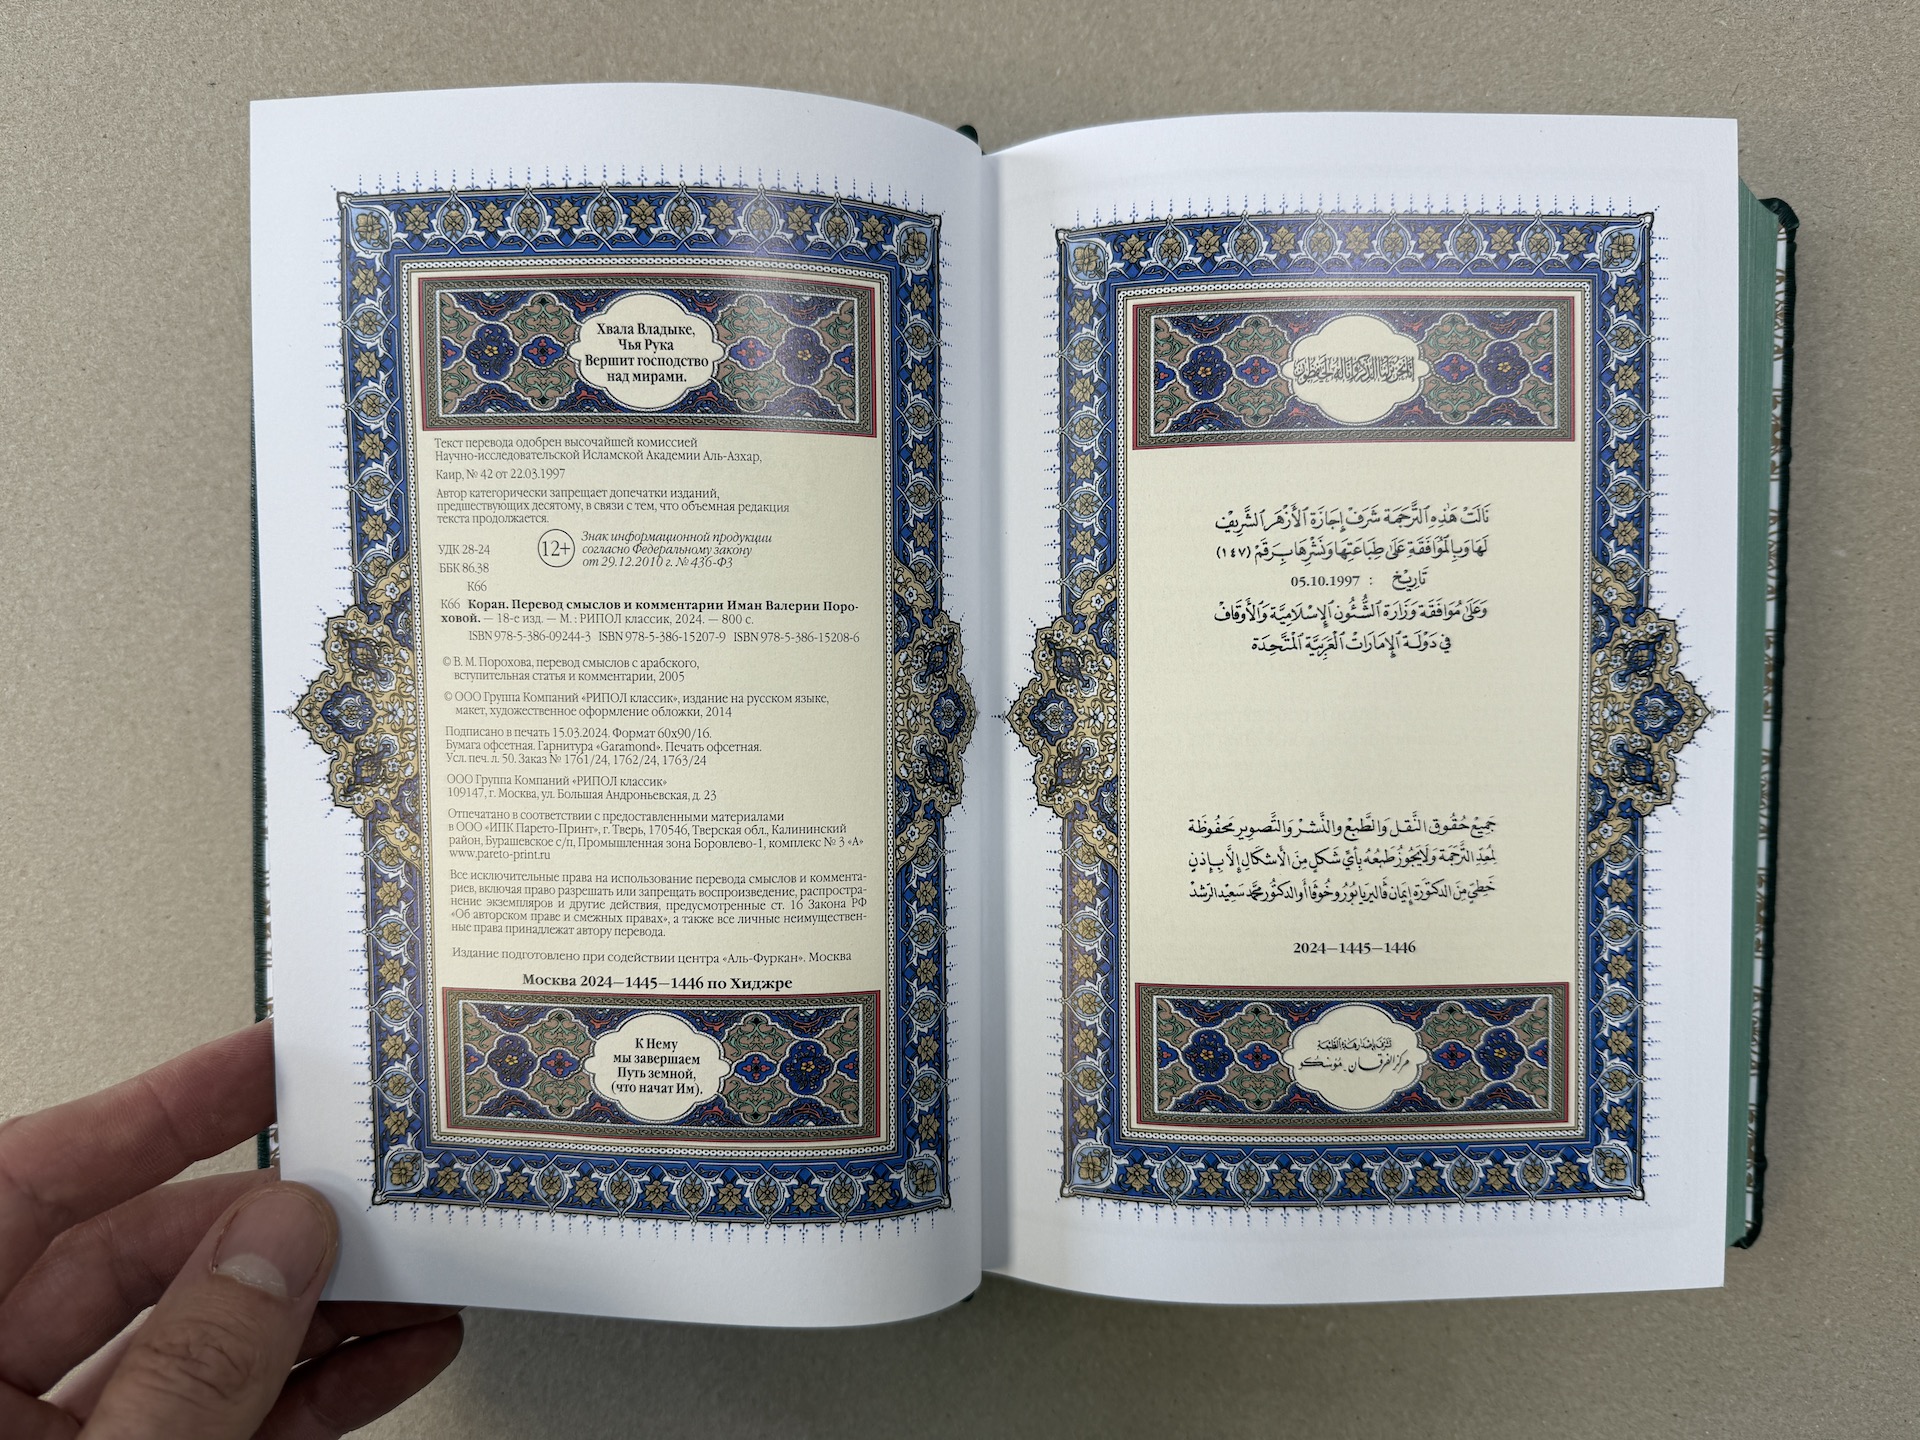 Хвала Владыке,
Чья Рука
Вершит господство
над мирами.
Текст перевода одобрен высочайшей комиссией
Научно-исследовательской Исламской Академии Аль-Азхар,
Каир, № 42 от 22.03.1997
Автор категорически запрещает допечатки изданий,
предшествующих десятому, в связи с тем, что объемная редакция
текста продолжается.
УДК 28-24
ББК 86.38
К66
12+
Знак информационной продукции
согласно Федеральному закону
от 29.12.2010 г. № 436-ФЗ
К66 Коран. Перевод смыслов и комментарии Иман Валерии Поро-
ховой. — 18-е изд. — М. : РИПОЛ классик, 2024. — 800 с.
ISBN 978-5-386-09244-3 ISBN 978-5-386-15207-9 ISBN 978-5-386-15208-6
© В. М. Порохова, перевод смыслов с арабского,
вступительная статья и комментарии, 2005
© ООО Группа Компаний «РИПОЛ классик», издание на русском языке,
макет, художественное оформление обложки, 2014
Подписано в печать 15.03.2024. Формат 60х90/16.
Бумага офсетная. Гарнитура «Garamond». Печать офсетная.
Усл. печ. л. 50. Заказ № 1761/24, 1762/24, 1763/24
ООО Группа Компаний «РИПОЛ классик»
109147, г. Москва, ул. Большая Андроньевская, д. 23
Отпечатано в соответствии с предоставленными материалами
в ООО «ИПК Парето-Принт», г. Тверь, 170546, Тверская обл., Калининский
район, Бурашевское с/п, Промышленная зона Боровлево-1, комплекс № 3 «А»
www.pareto-print.ru
Все исключительные права на использование перевода смыслов и коммента-
риев, включая право разрешать или запрещать воспроизведение, распростра-
нение экземпляров и другие действия, предусмотренные ст. 16 Закона РФ
«Об авторском праве и смежных правах», а также все личные неимуществен-
ные права принадлежат автору перевода.
Издание подготовлено при содействии центра «Аль-Фуркан». Москва
Москва 2024—1445—1446 по Хиджре
К Нему
мы завершаем
Путь земной,
(что начат Им).
إنا نحن نزلنا الذكر وإنا له لحافظون
نَالَتْ هَذِهِ التَّرْجَمَة شَرَفْ إِجَازَة الأَزْهَر الشَّرِيفْ
لَهَا وَبِالمُوَافَقَة عَلَى طِبَاعَتِهَا وَنَشْرِهَا بِرَقَمْ (١٤٧)
تَارِيْخ : 05.10.1997
وَعَلَى مُوَافَقَة وَزَارَة الشُّئُون الإِسْلَامِيَّة وَالأَوْقَافْ
فِي دَوْلَة الإِمَارَاتْ الْعَرَبِيَّة الْمُتَّحِدَة
جَمِيْعْ حُقُوق النَّقْل وَالطَّبْع وَالنَّشْر وَالتَّصْوِير مَحْفُوظَة
لِمُعِدّ التَّرْجَمَة وَلَا يَجُوز طَبْعُهُ بِأَيِّ شَكْلٍ مِنَ الأَشْكَالِ إِلَّا بِإِذْنٍ
خَطِّي مِنَ الدكتورة إِيمَان فَاليريَا بُورُوخُوفَا أَو الدكتور مُحَمَّد سَعِيد الرشد
2024—1445—1446
تشرف بإصدار هذه الطبعة
مركز الفرقان . موسكو